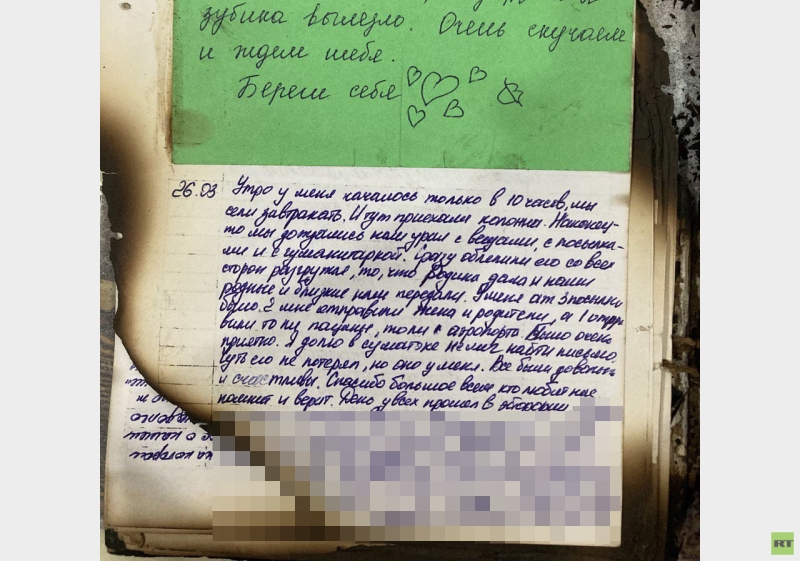 зубика вылезло. Очень скучаем
и ждем тебя.
Береги себя
26.03 Утро у меня началось только в 10 часов, мы
сели завтракать. И тут приехала колонна. Наконец-
то мы дождались наш урал с вещами, с посылка-
ми и с гуманитаркой. Сразу облепили его со всех
сторон разгружая, то, что Родина дала и наши
родные и близкие нам передали. У меня аж 3 посылки
было. 2 мне отправили жена и родители, а 1 отпра
вили то ли пацаны, то ли с аэропорта. Было очень
приятно. Я долго в суматохе не мог найти письмо,
чуть его не потерял, но оно у меня. Все были довольны
и счастливы. Спасибо большое всем кто любит нас
помнит и верит. День у всех прошел в
RT